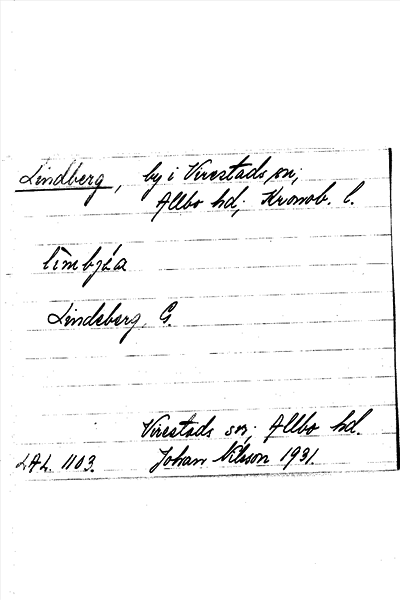 Lindberg, by i Virestads sn;
Allbo hd; Kronob. l.
līmbjä́a
Lindeberg, G.
Virestads sn; Allbo hd.
LAL. 1103. Johan Nilsson 1931.